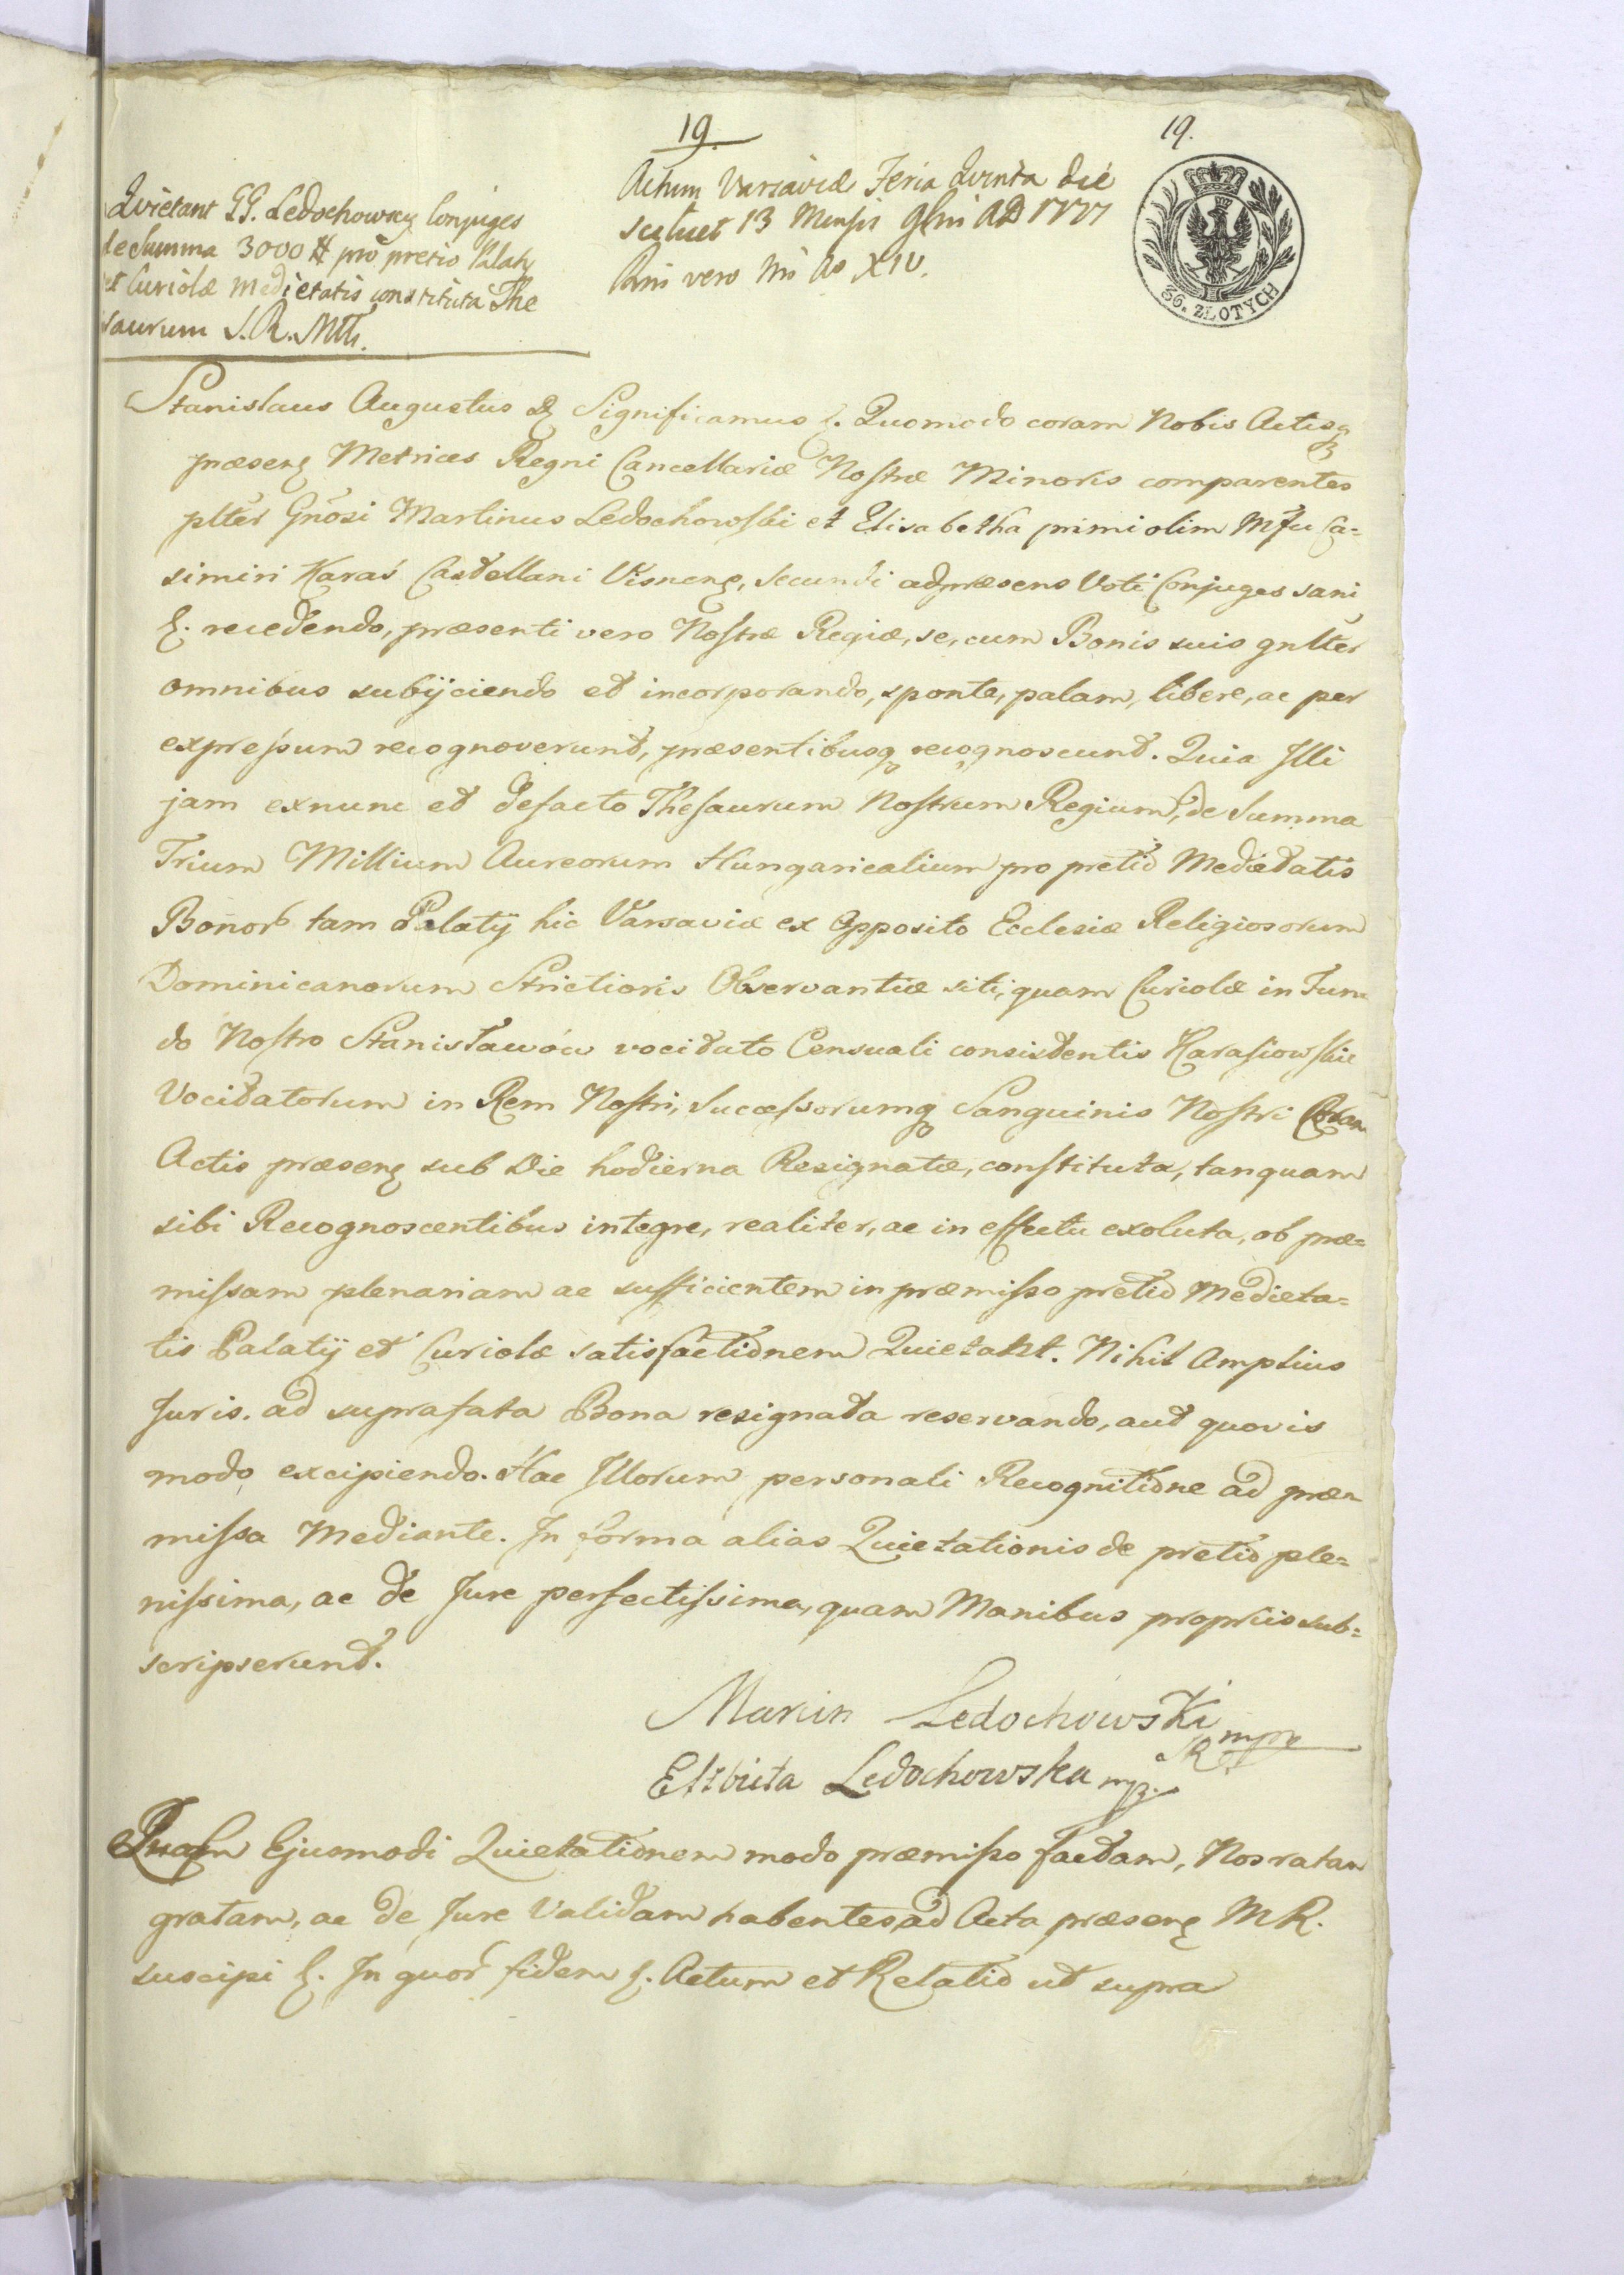 19
19.
Quietant GG. Ledochowscy Conjuges
de Summa 3000 # pro pretio Palatÿ
et Curiolæ medietatis constituta The
saurum S. R. Mtti.
Actum Varsaviæ Feria Quinta die
scilicet 13 Mensis 9bris AD 1777
Rñi vero Nri Ao XIV.
36. ZŁOTYCH
Stanislaus Augustus & Significamus &. Quomodo coram Nobis Actisq
præsen Metrices Regni Cancellariæ Nostræ Minoris comparentes
plter Gnosi Martinus Ledochowski et Elisabetha primi olim Mfci Ca=
simiri Karaś Castellani Visnen, secundi adpræsens Voti Conjuges sani
&. recedendo, præsenti vero Nostræ Regiæ, se, cum Bonis suis gnlter
omnibus subijciendo et incorporando, sponte, palam, libere, ac per
expressum recognoverunt, præsentibusq recognoscunt. Quia Illi
jam exnunc et defacto Thesaurum Nostrum Regium, de Summa
Trium Millium Aureorum Hungaricalium pro pretio Medietatis
Bonor tam Palatÿ hic Varsaviæ ex Opposito Ecclesiæ Religiosorum
Dominicanorum Strictioris Observantiæ siti, quam Curiolæ in Fun
do Nostro Stanisławów vocitato Censuali consistentis Karasiowskie
Vocitatorum in Rem Nostri, Successorumq Sanguinis Nostri Coram
Actis præsen sub Die hodierna Resignatæ, constituta, tanquam
sibi Recognoscentibus integre, realiter, ac in effectu exoluta, ob præ=
missam plenariam ac sufficientem in præmisso pretio Medieta=
tis Palatÿ et Curiolæ satisfactionem Quietant. Nihil Amplius
Juris. ad suprafata Bona resignata reservando, aut quovis
modo excipiendo. Hac Illorum personali Recognitione ad præ=
missa Mediante. In forma alias Quietationis de pretio ple=
nissima, ac de Jure perfectissima, quam Manibus propriis sub=
scripserunt.
Marcin Ledochowski mpr
Elżbieta Ledochowska mp.
Quam Ejusmodi Quietationem modo præmisso factam, Nos ratam
gratam, ac de Jure Validam habentes, ad Acta præsen MR.
suscipi &. In quor fidem &. Actum et Relatio ut supra